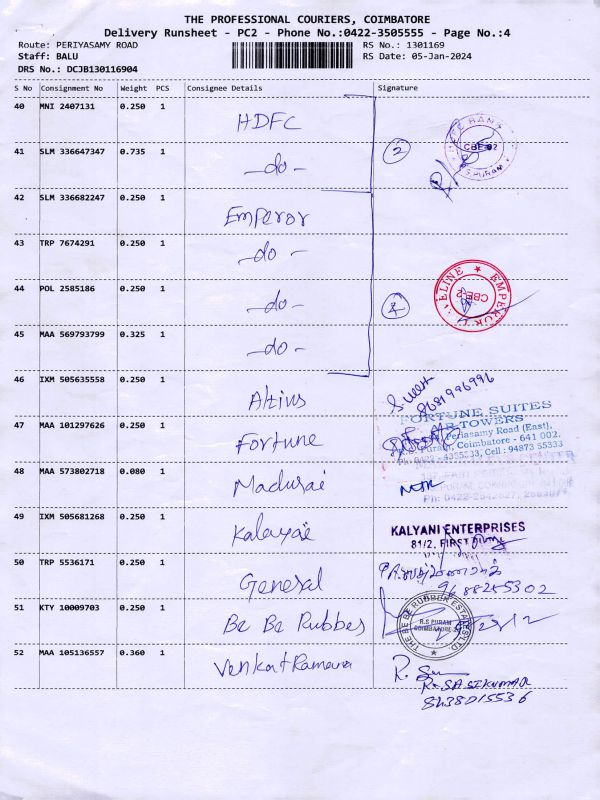 THE PROFESSIONAL COURIERS, COIMBATORE
Delivery Runsheet - PC2 - Phone No.:0422-3505555 - Page No.:4
Route: PERIYASAMY ROAD RS No.: 1301169
Staff: BALU RS Date: 05-Jan-2024
DRS No.: DCJB130116904
S No Consignment No Weight PCS Consignee Details Signature
40 MNI 2407131 0.250 1 HDFC
41 SLM 336647347 0.735 1 -do- 2 CBE 02
R.S.PURAM
42 SLM 336682247 0.250 1 Emperor
43 TRP 7674291 0.250 1 -do-
44 POL 2585186 0.250 1 -do- 4 CBE-2
45 MAA 569793799 0.325 1 -do-
46 IXM 505635558 0.250 1 Altius
8681996996
47 MAA 101297626 0.250 1 Fortune FORTUNE SUITES
TOWERS
Periasamy Road (East),
Coimbatore - 641 002.
Cell : 94873 55333
48 MAA 573802718 0.080 1 Madurai
49 IXM 505681268 0.250 1 Kalayae KALYANI ENTERPRISES
81/2, FIRST
50 TRP 5536171 0.250 1 General
9688255302
51 KTY 10009703 0.250 1 Be Be Rubbes THE BE BE RUBBER ESTATES LTD.
R.S PURAM
COIMBATORE
52 MAA 105136557 0.360 1 VenkatRamana
R. SASIKUMAR
8438015536